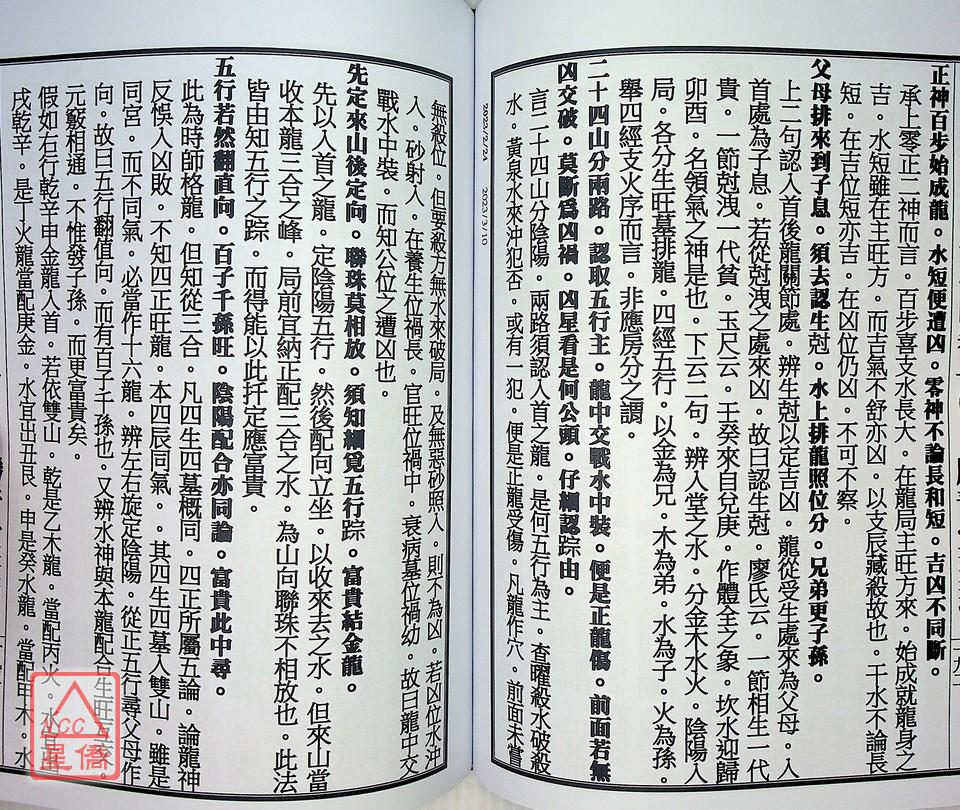 正神百步始成龍。水短便遭凶。零神不論長和短。吉凶不同斷。
承上零正二神而言。百步喜支水長大。在龍局主旺方來。始成就龍身之
吉。水短雖在主旺方。而吉氣不舒亦凶。以支辰藏殺故也。干水不論長
短。在吉位短亦吉。在凶位仍凶。不可不察。
父母排來到子息。須去認生尅。水上排龍照位分。兄弟更子孫。
上二句認入首後龍關節處。辨生尅以定吉凶。龍從受生處來為父母。入
首處為子息。若從尅洩之處來凶。故曰認生尅。廖氏云。一節相生一代
貴。一節尅洩一代貧。玉尺云。壬癸來自兌庚。作體全之象。坎水迎歸
卯酉。名領氣之神是也。下云二句。辨入堂之水。分金木水火。陰陽入
局。各分生旺墓排龍。四經五行。以金為兄。木為弟。水為子。火為孫。
舉四經支火序而言。非應房分之謂。
二十四山分兩路。認取五行主。龍中交戰水中裝。便是正龍傷。前面若無
凶交破。莫斷為凶禍。凶星看是何公頭。仔細認踪由。
言二十四山分陰陽。兩路須認入首之龍。是何五行為主。查曜殺水破殺
水。黃泉水來沖犯否。或有一犯。便是正龍受傷。凡龍作穴。前面未嘗
2023/2/24
2023/3/10
無殺位。但要殺方無水來破局。及無惡砂照入。則不為凶。若凶位水沖
入。砂射入。在養生位禍長。官旺位禍中。衰病墓位禍幼。故曰龍中交
戰水中裝。而知公位之遭凶也。
先定來山後定向。聯珠莫相放。須知細覓五行踪。富貴結金龍。
先以入首之龍。定陰陽五行。然後配向立坐。以收來去之水。但來山當
收本龍三合之峰。局前宜納正配三合之水。為山向聯珠不相放也。此法
皆由知五行之踪。而得能以此扦定應富貴。
五行若然翻直向。百子千孫旺。陰陽配合亦同論。富貴此中尋。
此為時師格龍。但知從三合。凡四生四墓概同。四正所屬五論。論龍神
反悞入凶敗。不知四正旺龍。本四辰同氣。其四生四墓入雙山。雖是
同宮。而不同氣。必當作十六龍。辨左右旋定陰陽。從正五行尋父母作
向。故曰五行翻值向。而有百子千孫也。又辨水神與本龍配合生旺互家。
元竅相通。不惟發子孫。而更富貴矣。
假如右行乾辛申金龍入首。若依雙山。乾是乙木龍。當配丙火。水宜出
戌乾辛。是丁火龍當配庚金。水宜出丑艮。申是癸水龍。當配甲木。水
NCC
星僑